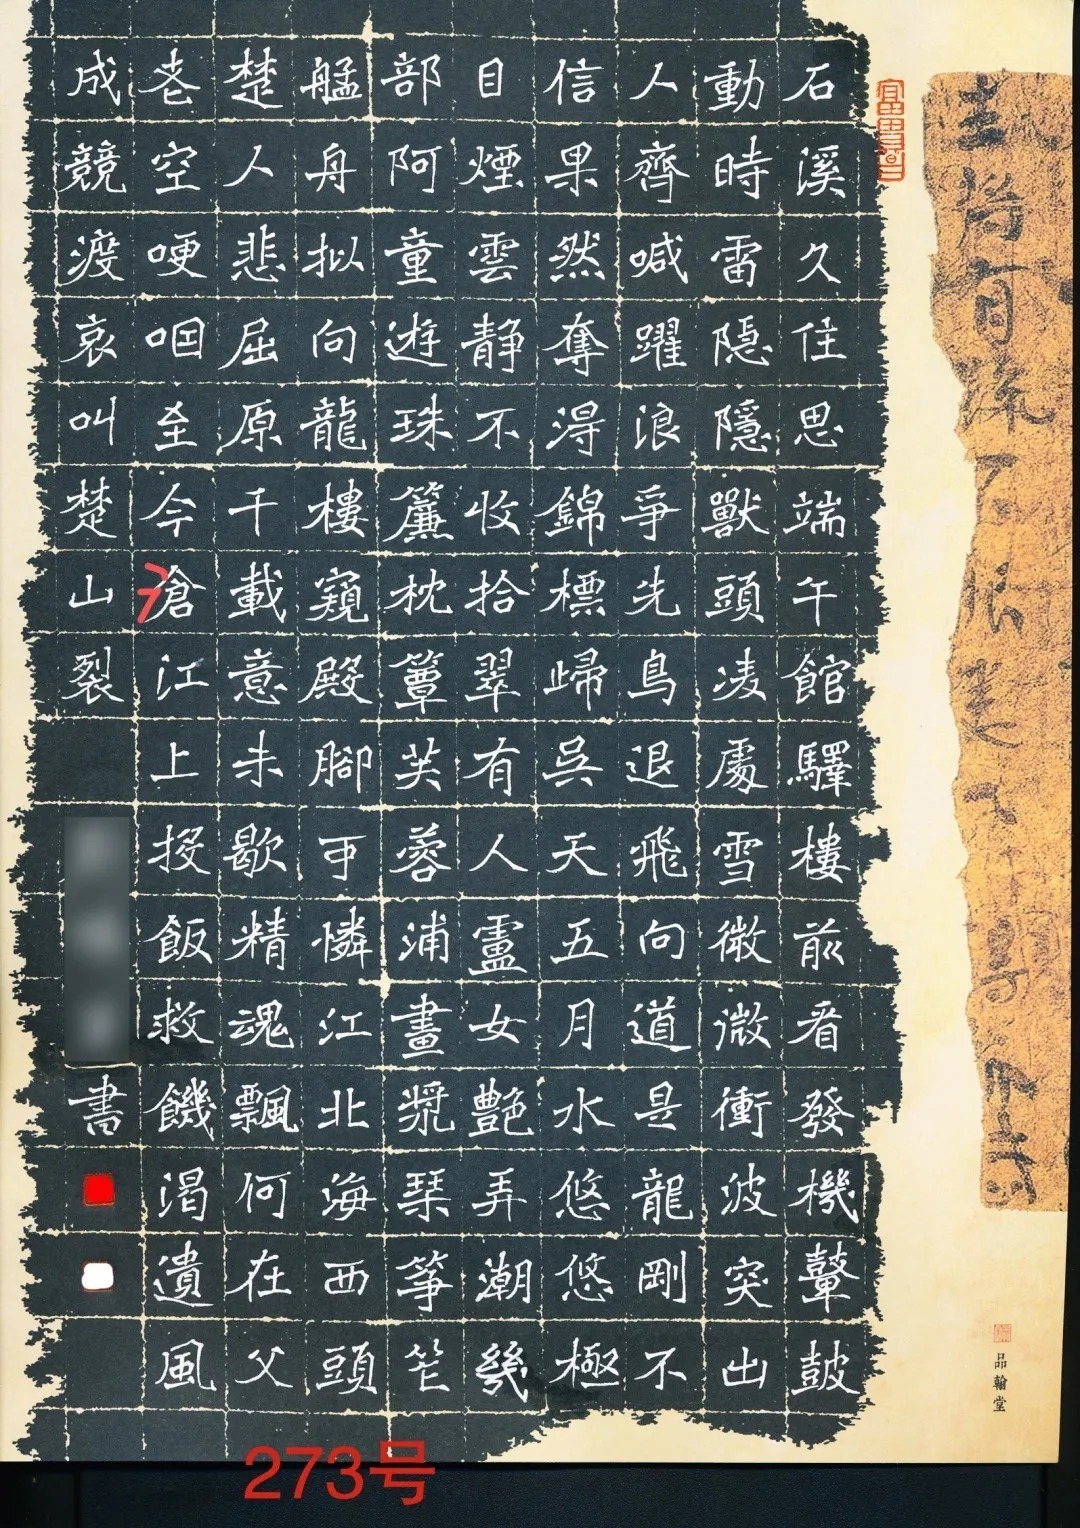 石溪久住思端午館驛樓前看發機鼙鼓
動時雷隱隱獸頭凌處雪微微衝波突出
人齊喊躍浪爭先鳥退飛向道是龍剛不
信果然奪得錦標歸吳天五月水悠悠極
目煙雲静不收拾翠有人盧女艷弄潮幾
部阿童遊珠簾枕簟芙蓉浦畫槳琴箏笮
艋舟拟向龍樓窺殿腳可憐江北海西頭
楚人悲屈原千載意未歇精魂飄何在父
老空哽咽至今滄江上投飯救饑渴遺風
成競渡哀叫楚山裂
書
品翰堂
273号